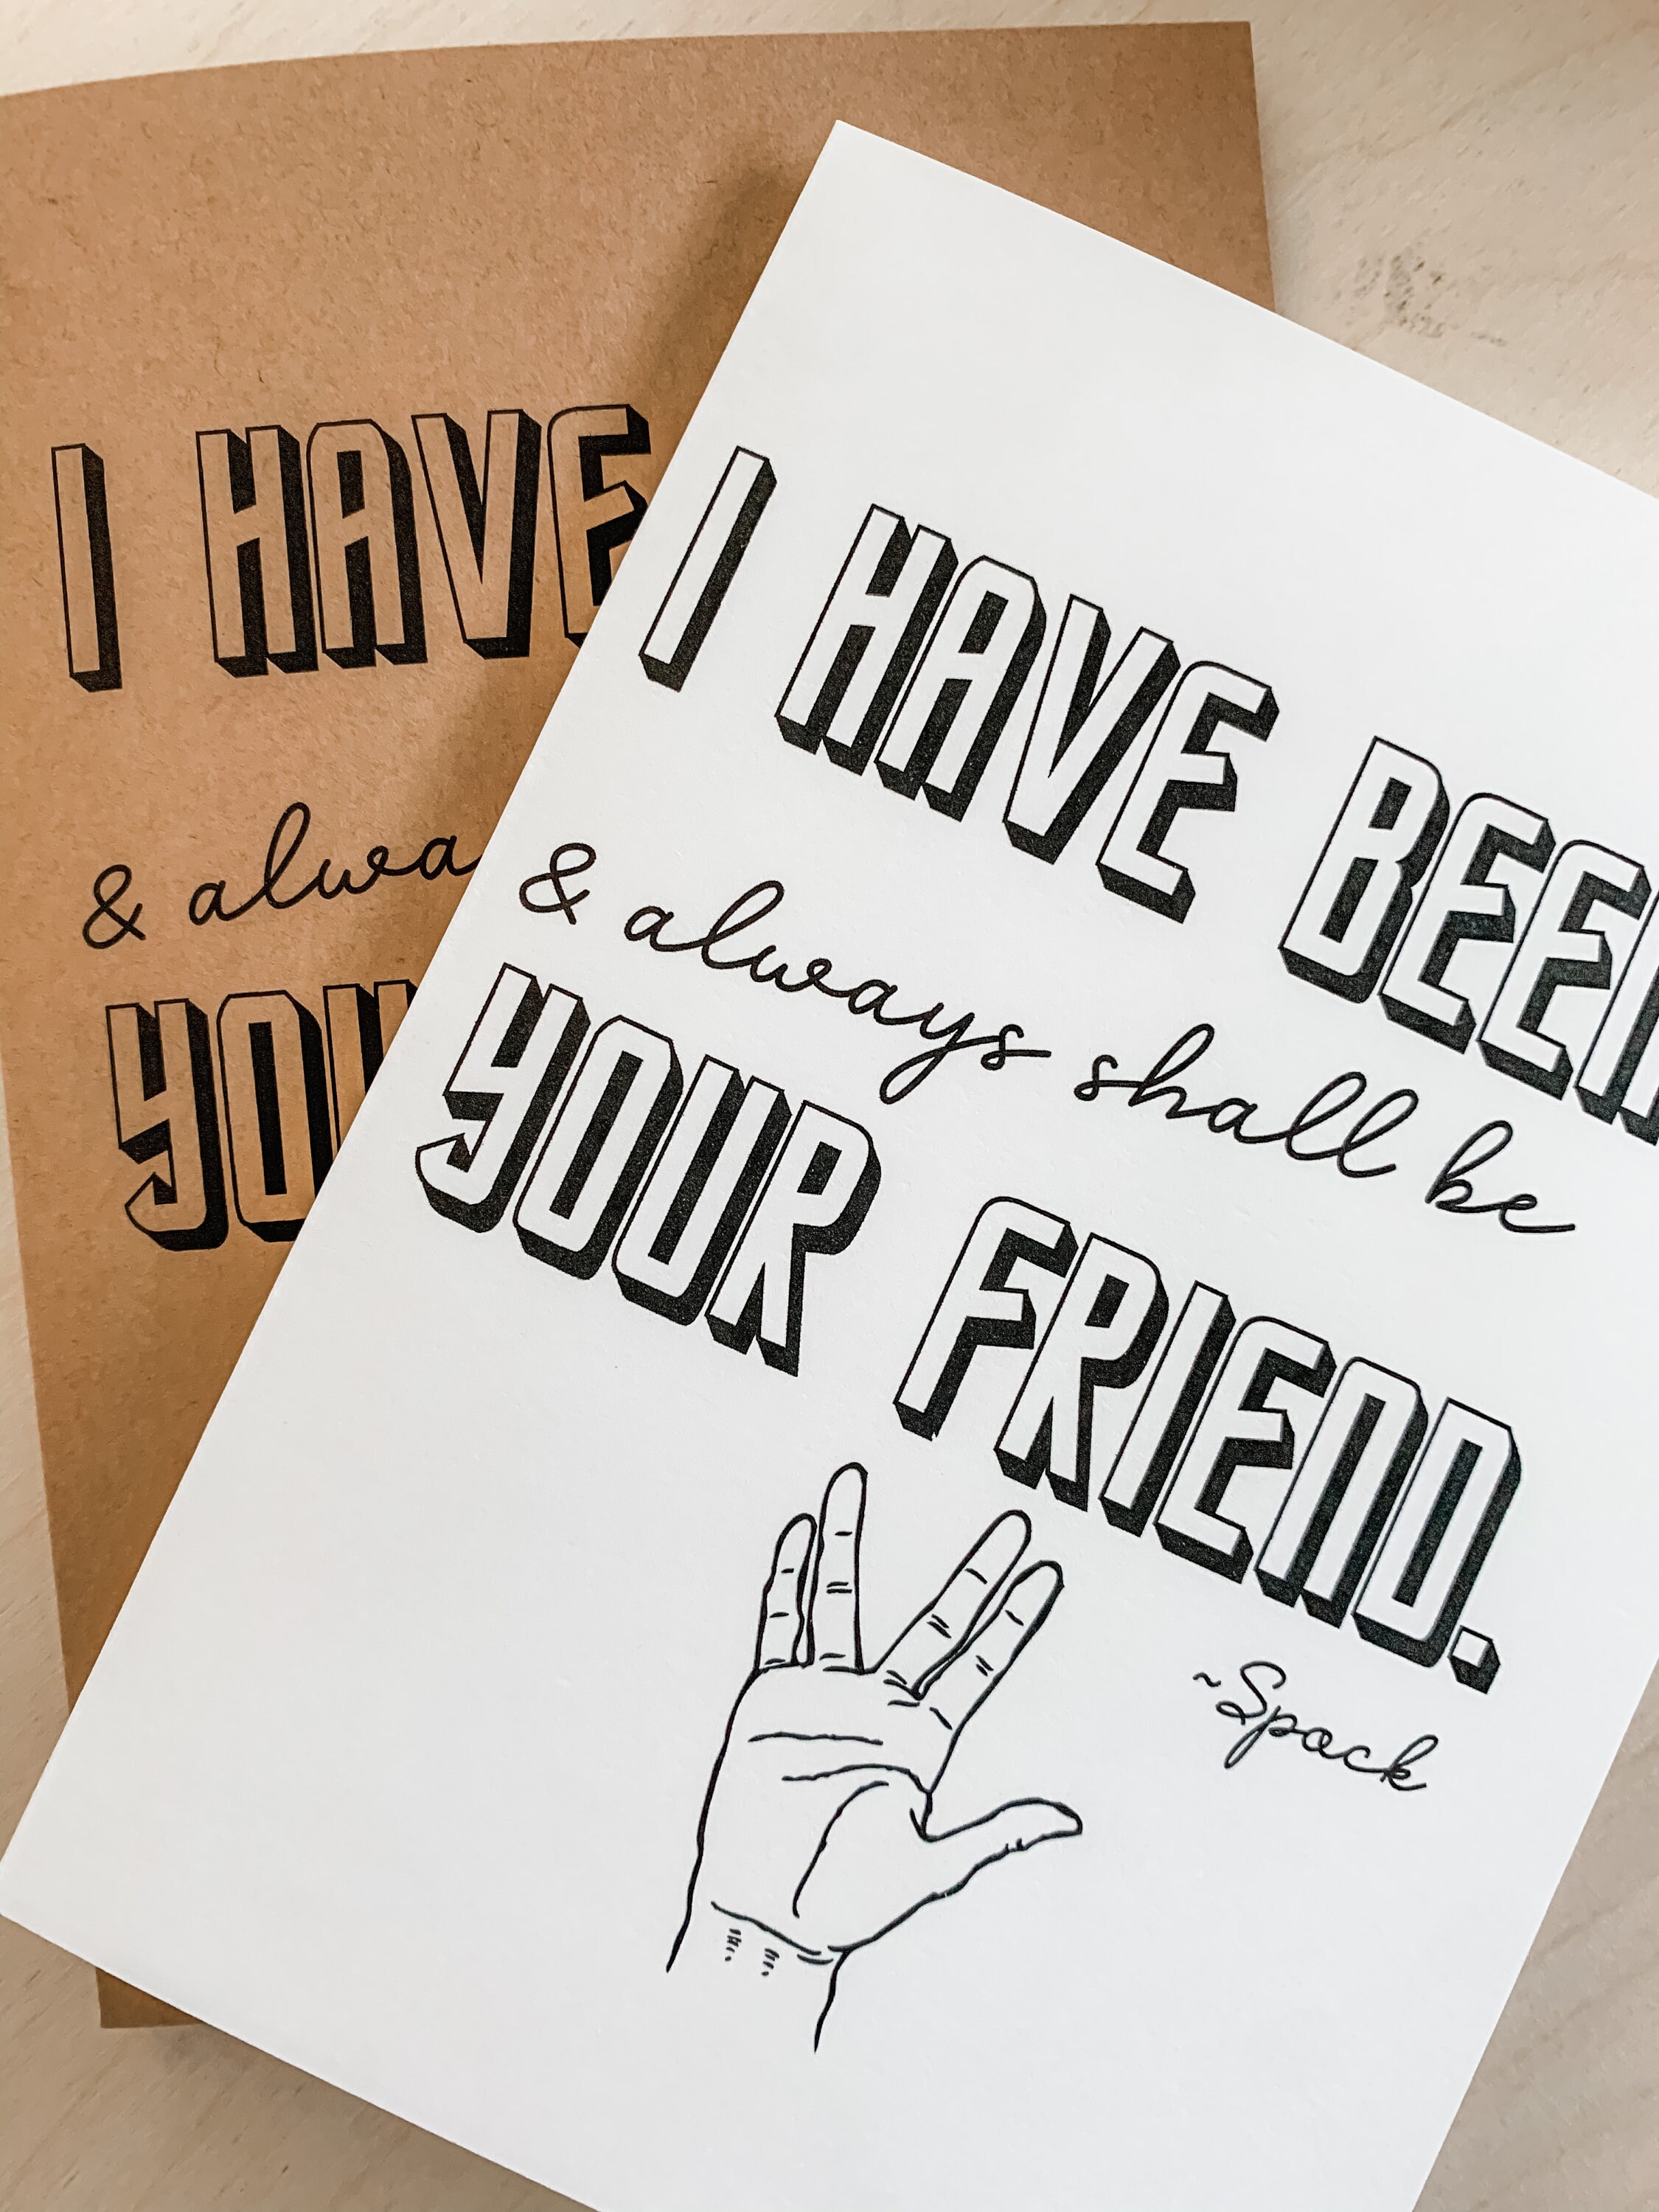 I HAVE
& alwa
YOU
I HAVE BEEN
& always shall be
YOUR FRIEND.
~Spock